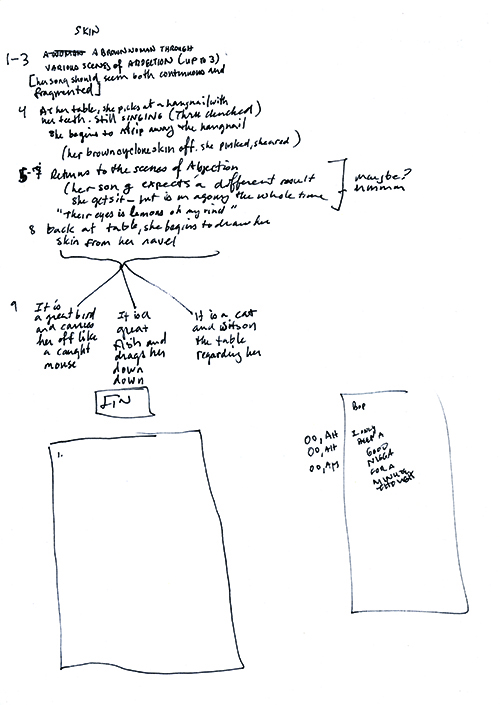 SKIN
1-3 A WOMAN A BROWN WOMAN THROUGH
VARIOUS SCENES of ABJECTION (UP TO 3)
[her song should seem both continuous and
fragmented]
4 At her table, she picks at a hangnail with
her teeth. Still SINGING (Thru clenched)
She begins to strip away the hangnail
(her brown cyclone skin off. she pinked, sheared)
5-7 Returns to the scenes of Abjection
(her song expects a different result
she gets it - but is in agony the whole time
"Their eyes is lemons oh my rind"
maybe?
hmmm
8 back at table, she begins to draw her
skin from her navel
9 It is
a great bird
and carries
her off like
a caught
mouse
It is a
great
fish and
drags her
down
down
It is a cat
and sits on
the table
regarding her
FIN
1.
Bop
OO, AH
OO, AH
OO, AH
I only
been A
GOOD
NIGGA
FOR A
MINUTE
THOUGH